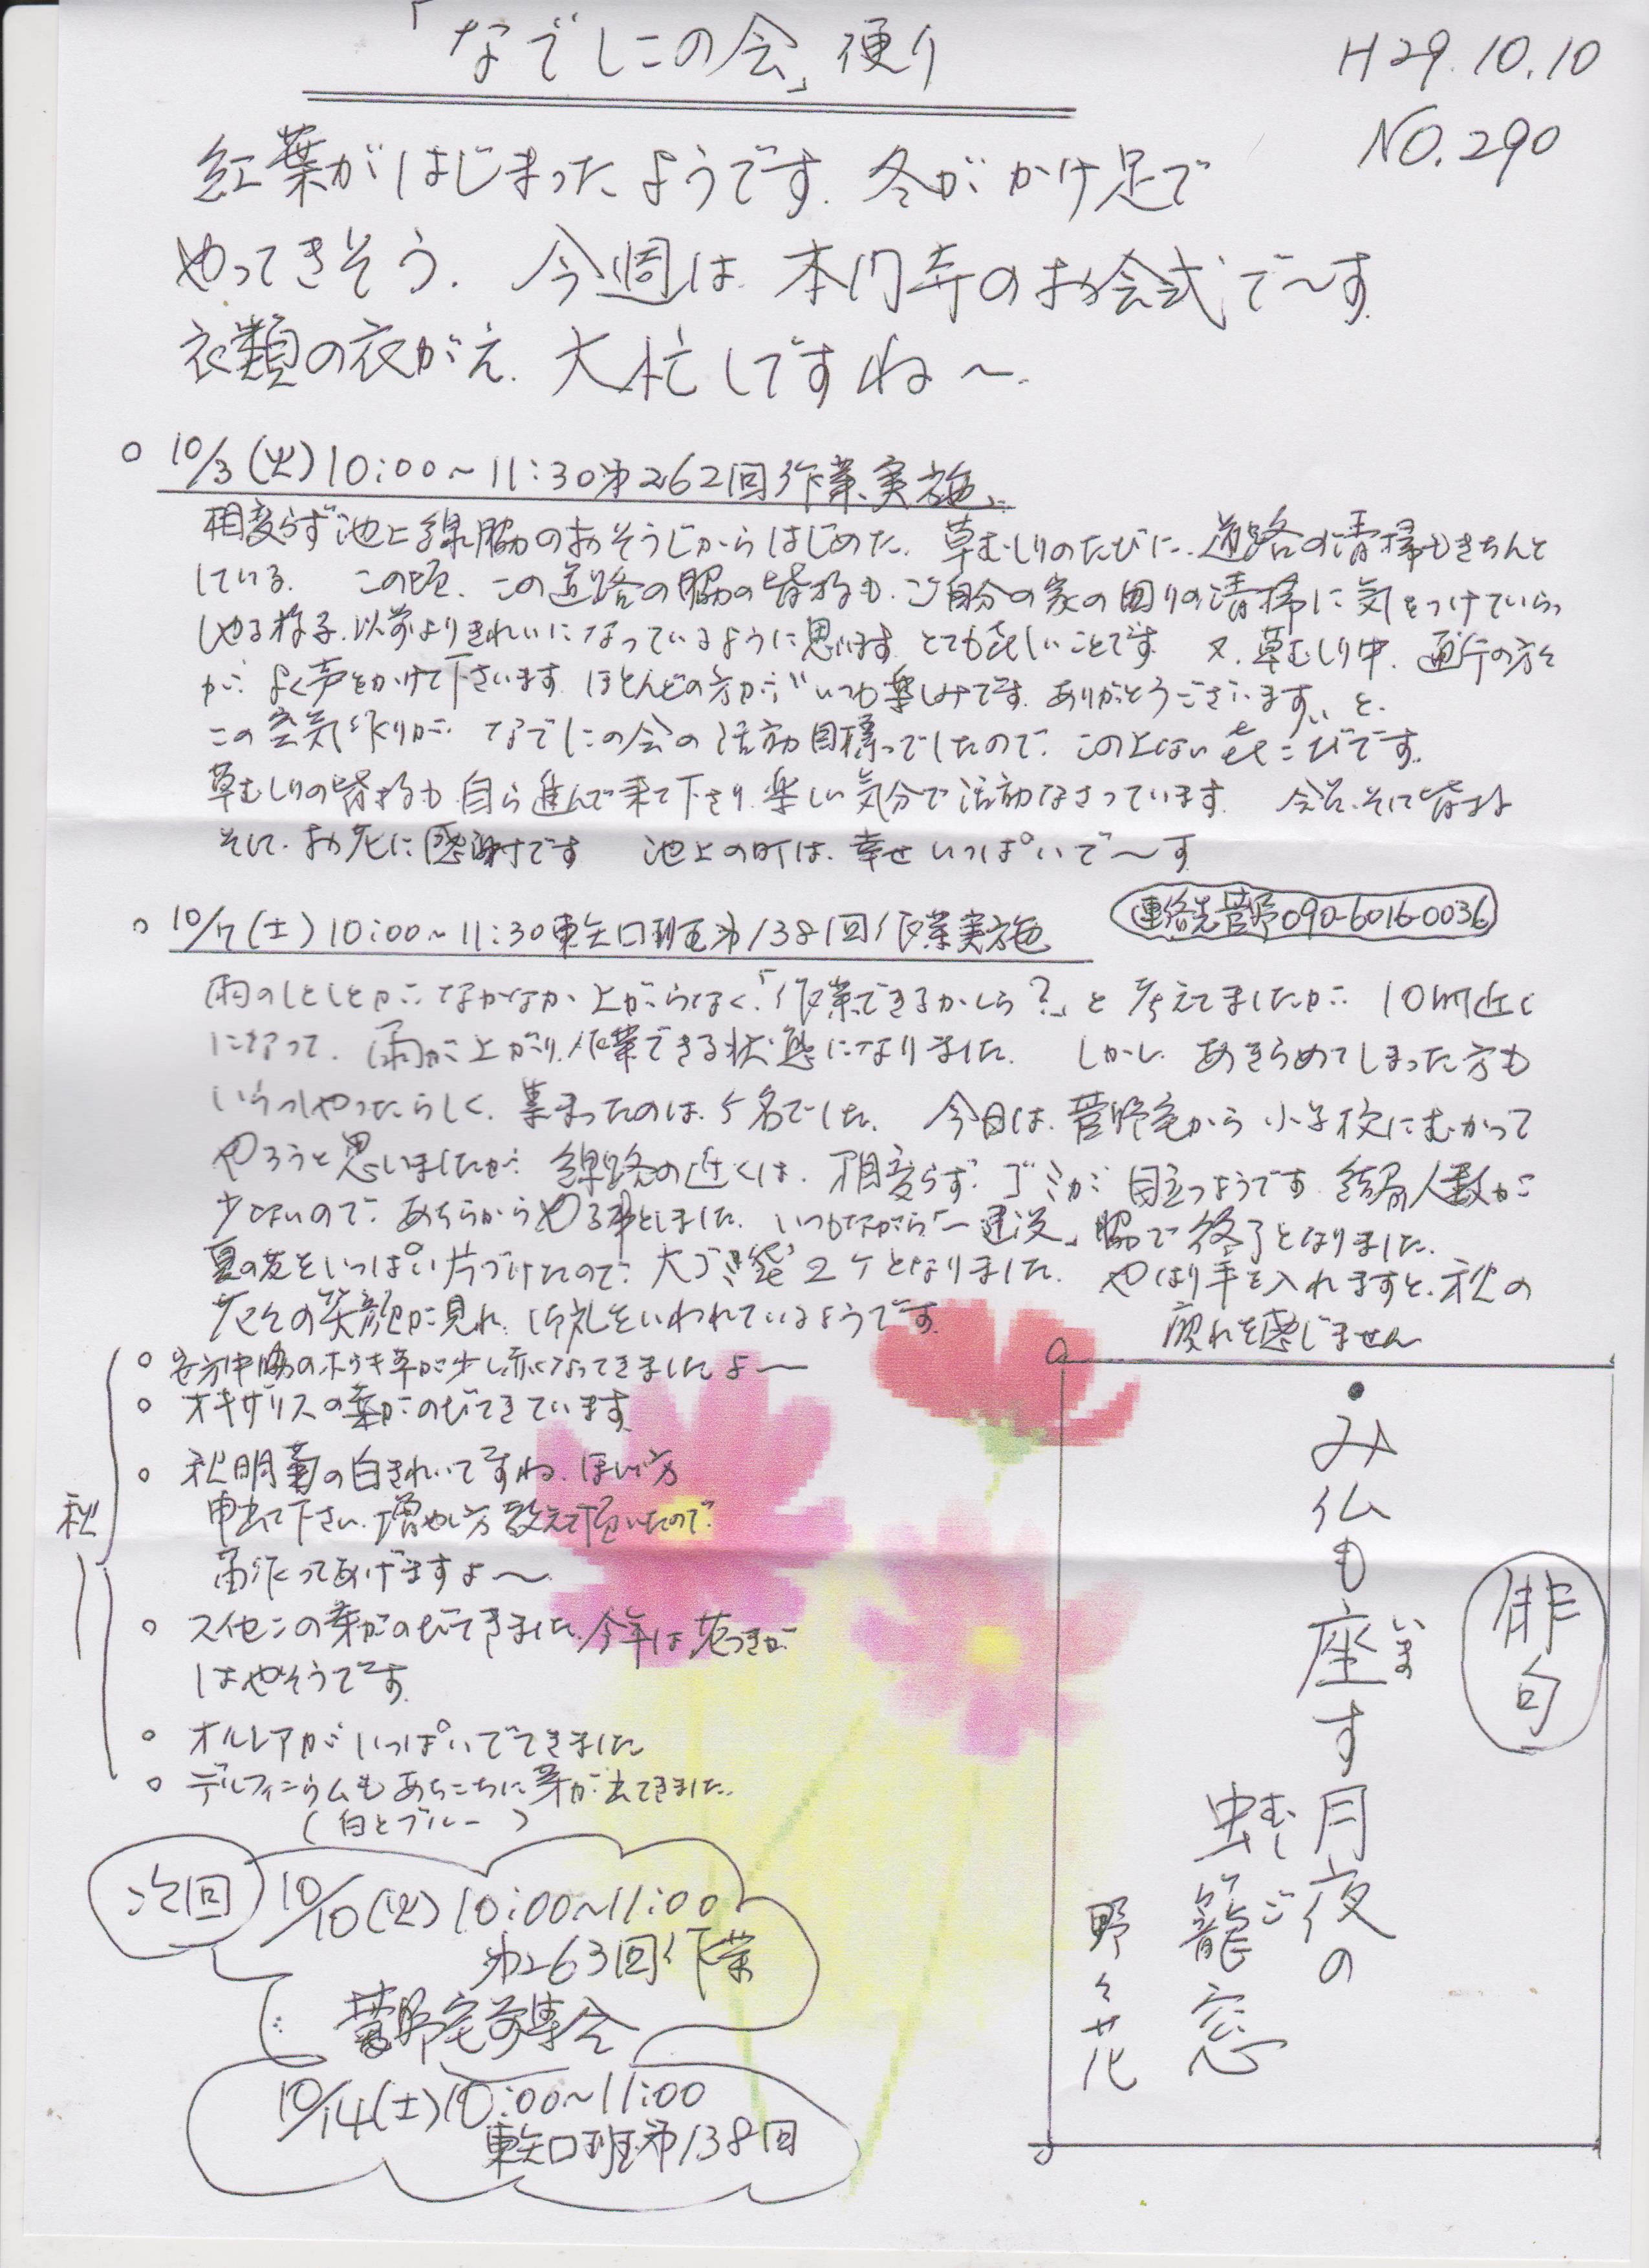 「なでしこの会」便り
H29.10.10
NO.290
紅葉がはじまったようです.冬がかけ足で
やってきそう.今週は.本門寺のお会式で〜す.
衣類の衣がえ.大忙しですね〜.
○ 10/3(火)10:00〜11:30第262回作業実施
相変らず池上線脇のおそうじからはじめた.草むしりのたびに.道路の清掃もきちんと
している.この頃.この道路の脇の皆様も.ご自分の家の周りの清掃に気をつけていらっ
しゃる様子.以前よりきれいになっているように思います.とても嬉しいことです.又.草むしり中.通行の方々
が.よく声をかけて下さいます.ほとんどの方が"いつも楽しみです.ありがとうございます"と.
この空気作りが.なでしこの会の活動目標でしたので.この上ない喜こびです.
草むしりの皆様も.自ら進んで来て下さり.楽しい気分で活動なさっています.会員.そして皆様
そして.お花に感謝です 池上の町は.幸せいっぱいで〜す
連絡先菅野090-6016-0036
○ 10/7(土)10:00〜11:30東矢口班第138回作業実施
雨のしとしとが.なかなか上がらなく.「作業できるかしら?」と考えてましたが.10時近く
になって.雨が上がり.作業できる状態になりました.しかし.あきらめてしまった方も
いらっしゃったらしく.集まったのは.5名でした.今日は.菅野宅から小学校にむかって
やろうと思いましたが.線路の近くは.相変らず.ゴミが目立つようです.結局人数が
少ないので.あちらからやる事としました.いつもながら「一建設」脇で終了となりました.
夏の花をいっぱい片づけたので.大ゴミ袋2ケとなりました.やはり手を入れますと.秋の
花々の笑顔が見れ.御礼をいわれているようです.
疲れを感じません
秋
○ 安方中脇のホウキ草が少し赤くなってきましたよ〜
○ オキザリスの葉がのびてきています
○ 秋明菊の白きれいですね.ほしい方
申出て下さい.増やし方教えて頂いたので.
苗作ってあげますよ〜
○ スイセンの芽がのびてきました.今年は花つきが
はやそうです.
○ オルレアがいっぱいでてきました
○ デルフィニウムもあちこちに芽が出てきました.
(白とブルー)
次回
10/10(火)10:00〜11:00
第263回作業
菅野宅前集合
10/14(土)10:00〜11:00
東矢口班第138回
俳句
・み仏も座す月夜の
いま
虫籠窓
むしご
野々花